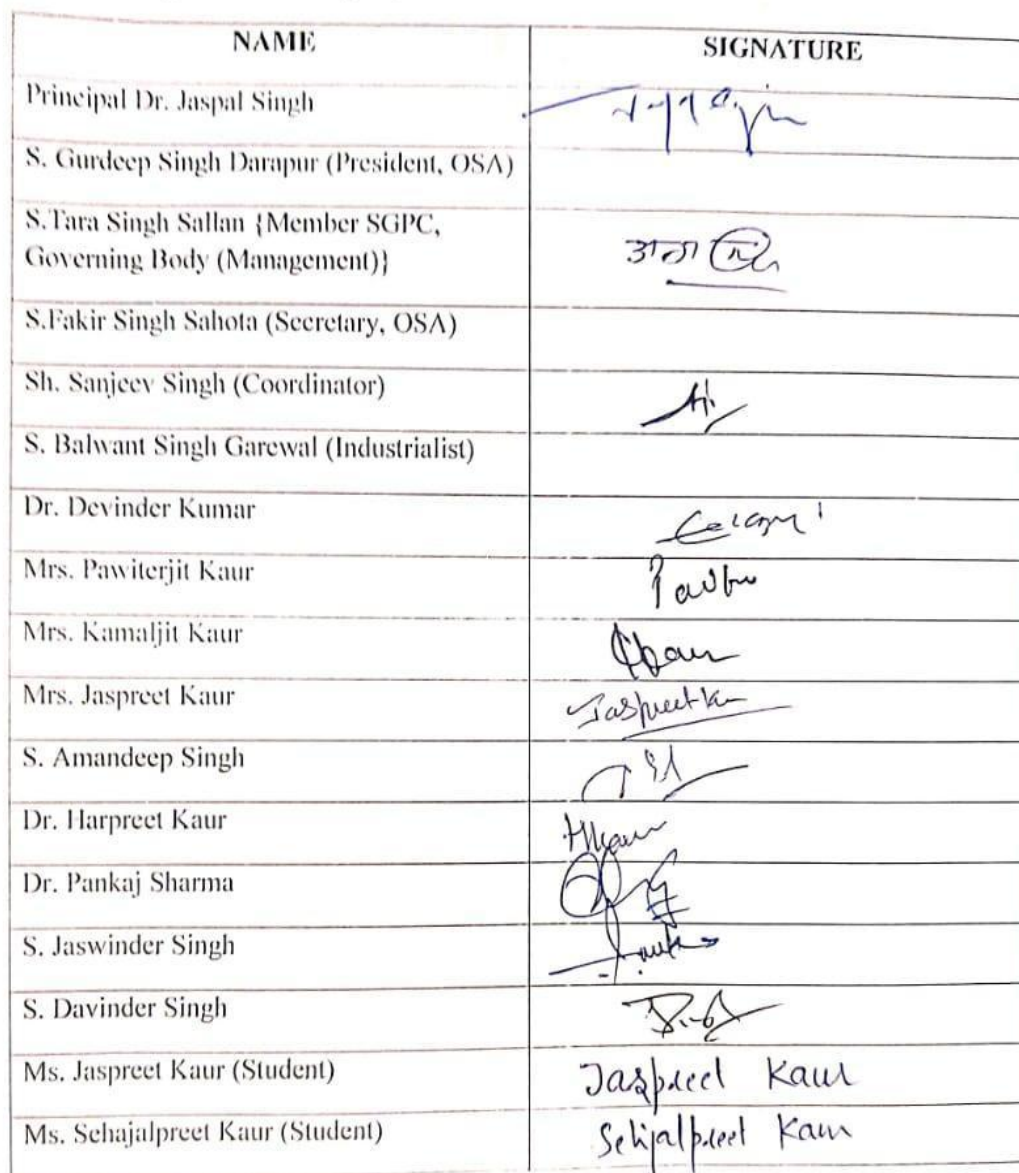 NAME SIGNATURE
Principal Dr. Jaspal Singh
S. Gurdeep Singh Darapur (President, OSA)
S.Tara Singh Sallan {Member SGPC,
Governing Body (Management)}
S.Fakir Singh Sahota (Secretary, OSA)
Sh. Sanjeev Singh (Coordinator)
S. Balwant Singh Garewal (Industrialist)
Dr. Devinder Kumar
Mrs. Pawiterjit Kaur
Mrs. Kamaljit Kaur
Mrs. Jaspreet Kaur Jaspreet
S. Amandeep Singh
Dr. Harpreet Kaur HKaur
Dr. Pankaj Sharma
S. Jaswinder Singh
S. Davinder Singh
Ms. Jaspreet Kaur (Student) Jaspreet Kaur
Ms. Sehajalpreet Kaur (Student) Sehjalpreet Kaur